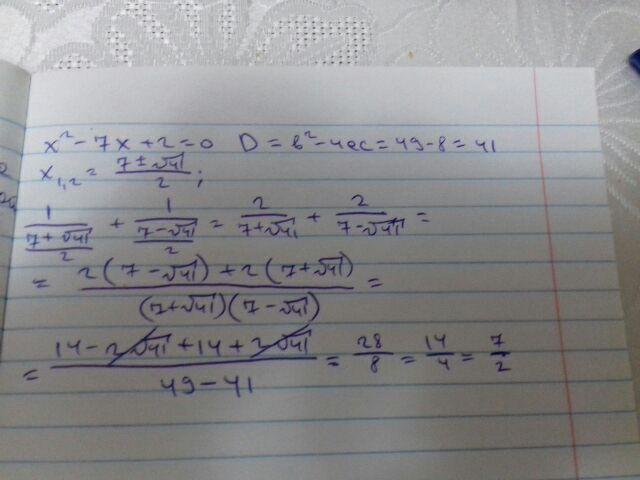 x² - 7x + 2 = 0 D = b² - 4ac = 49 - 8 = 41
x₁,₂ = (7 ± √41)/2 ;
1/((7 + √41)/2) + 1/((7 - √41)/2) = 2/(7 + √41) + 2/(7 - √41) =
= (2(7 - √41) + 2(7 + √41))/((7 + √41)(7 - √41)) =
= (14 - 2√41 + 14 + 2√41)/(49 - 41) = 28/8 = 14/4 = 7/2